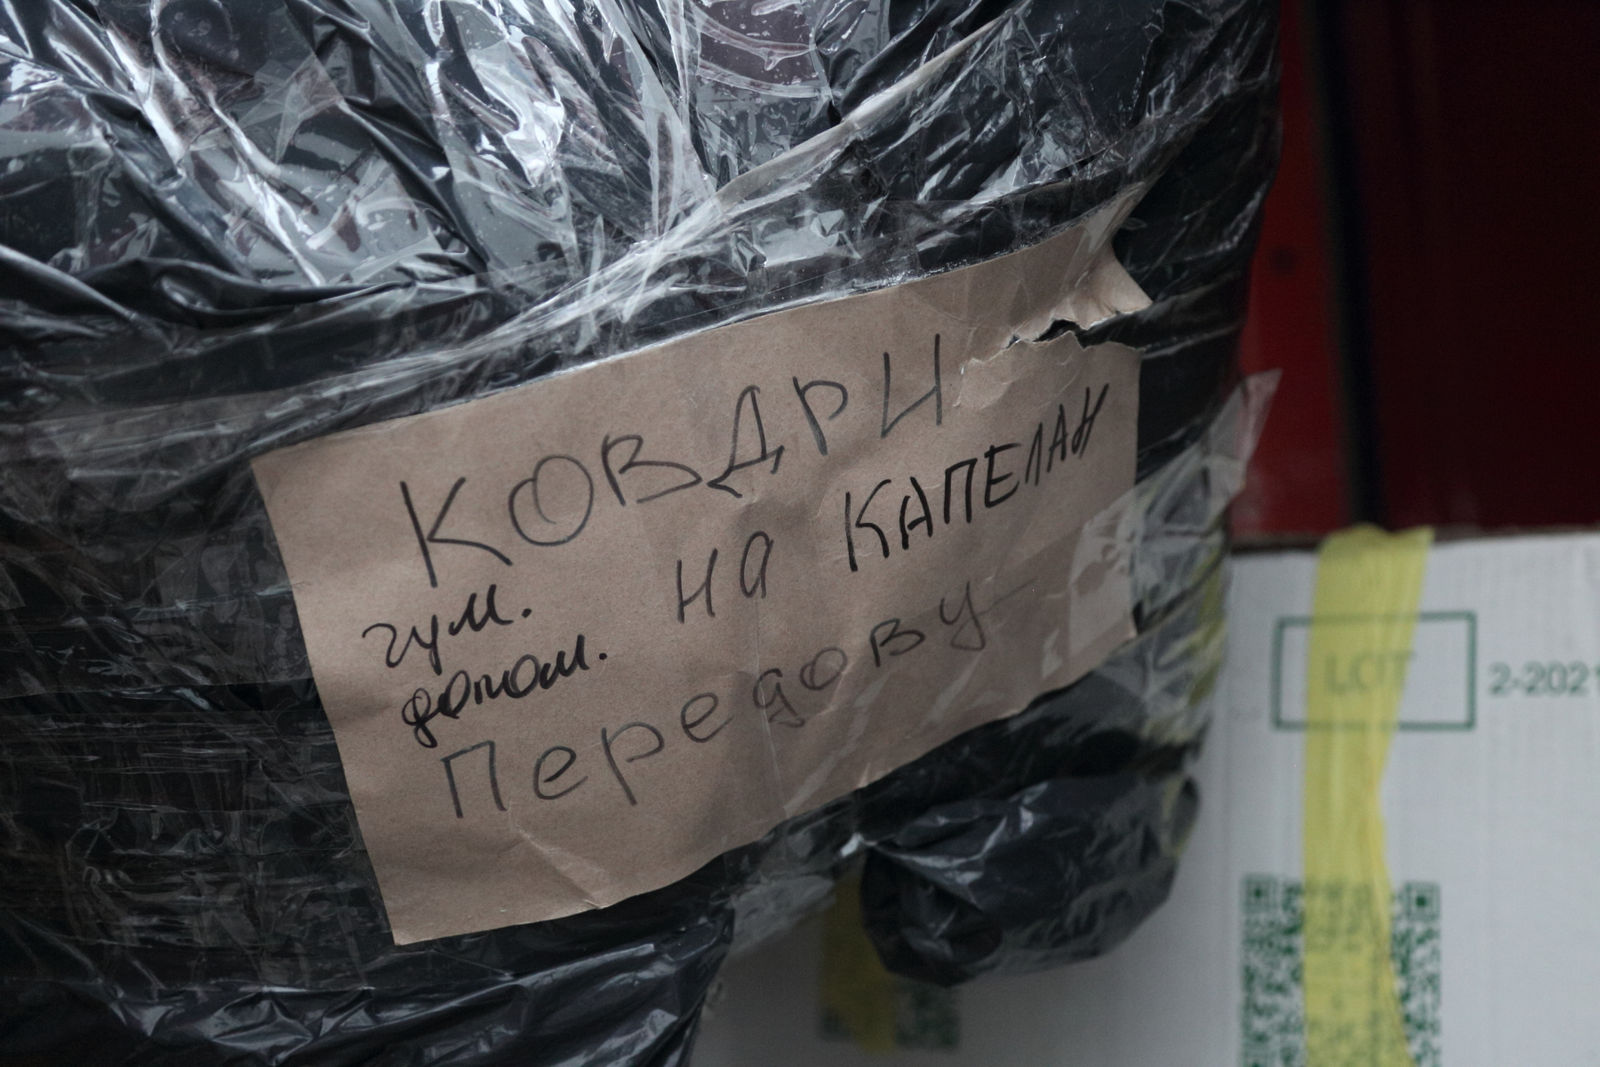 КОВДРИ
гум. допом.
на КАПЕЛАН
Передову
LOT
2-2021